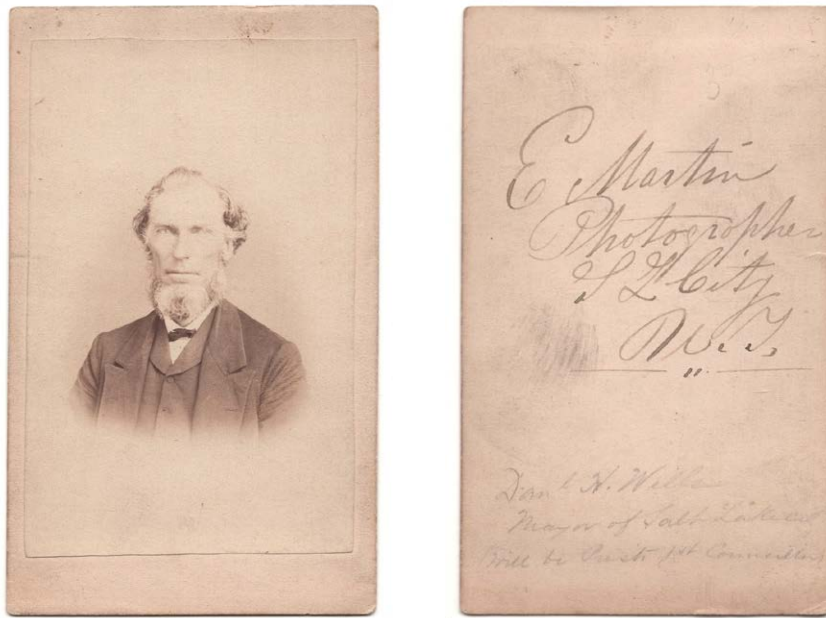 E Martin
Photographer
S L City
U. T.
Danl H. Wells
Mayor of Salt Lake
Will be Prest 1st Councillor